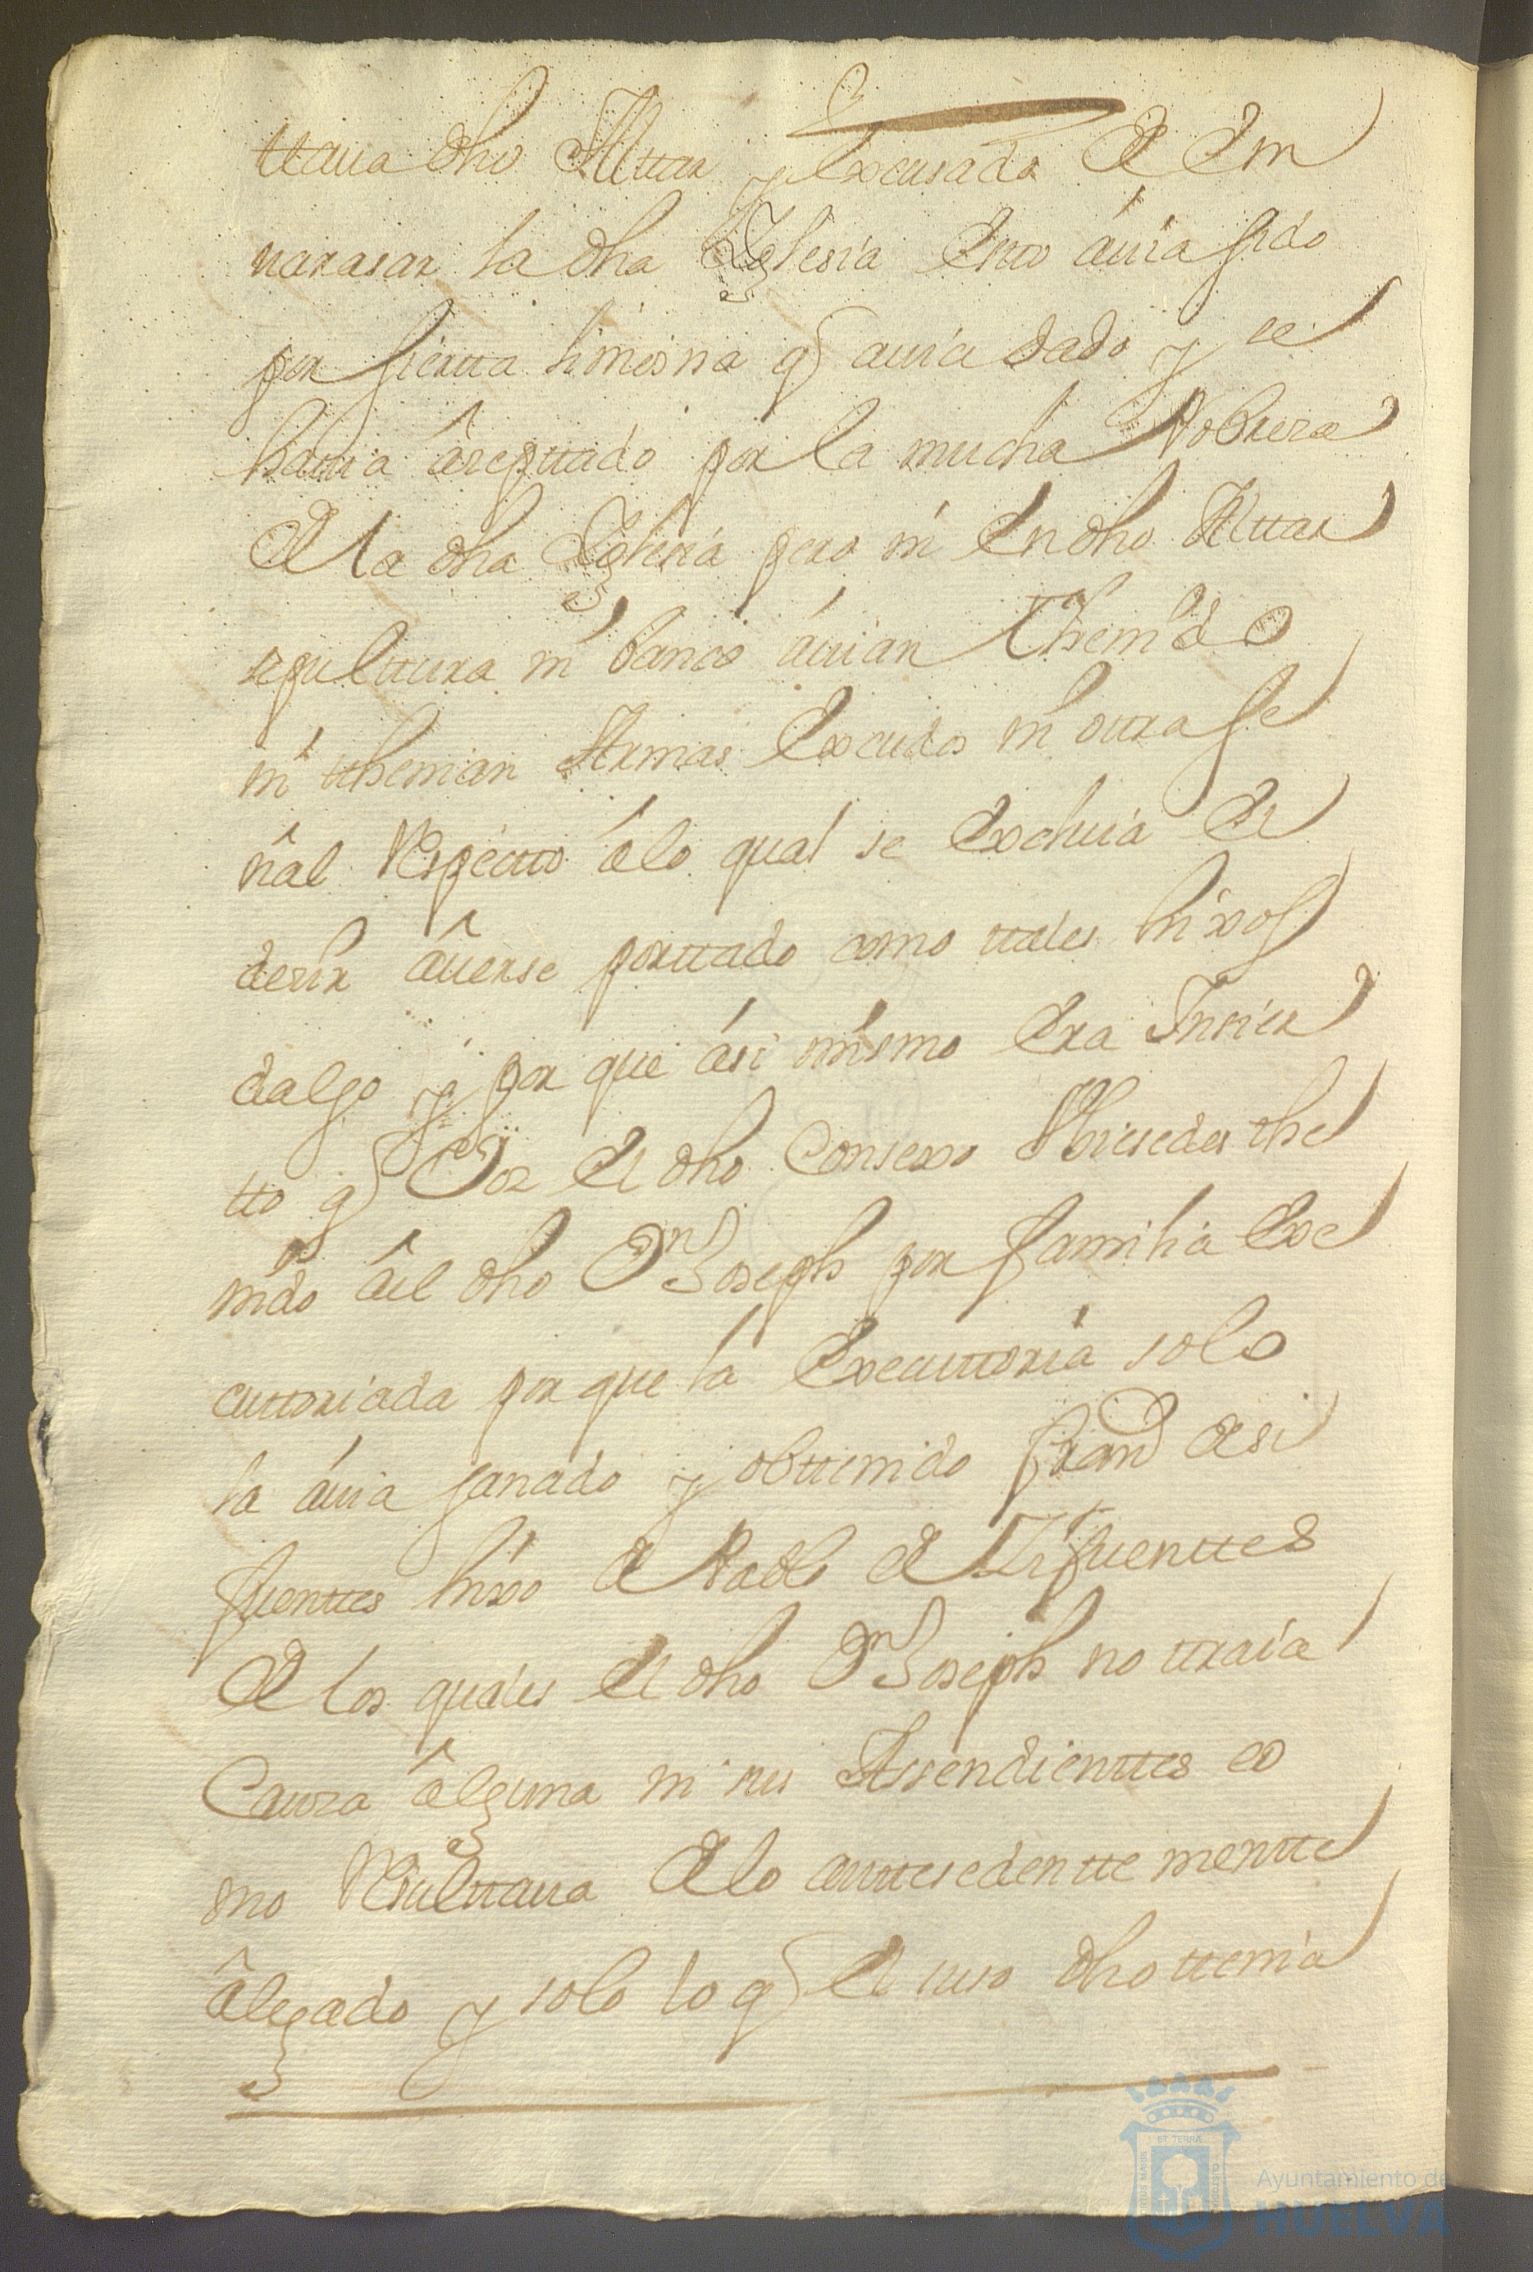 ttaua dho Alttar y Excusado de Em
narasar la dha Yglesia Esto áuia sido
por sierta limosna q auia dado y se
hauia âseptado por la mucha Pobresa
de la dha Yglesia pero ni En dho Alttar
sepulttura ni banco áuian thenido
ni tthenian Armas Excudos ni otra se
ñal Respectto âlo qual se Excluia El
desir âuerse porttado como ttales hixos
dalgo y por que ási mismo Era Insier
tto q Por El dho Consexo Ubiesedes the
nido âl dho Dn Joseph por familia Exe
cuttoriada por que la Executtoria solo
la áuia ganado y obttenido Franco de Si
fuenttes hixo de Pablo de Zifuenttes
de los quales El dho Dn Joseph no ttraia
Causa âlguna ni sus Assendienttes co
mo Resulttaua de lo anttesedentte mentte
âlegado y solo lo q El suso dho ttenia
Ayuntamiento de
HUELVA